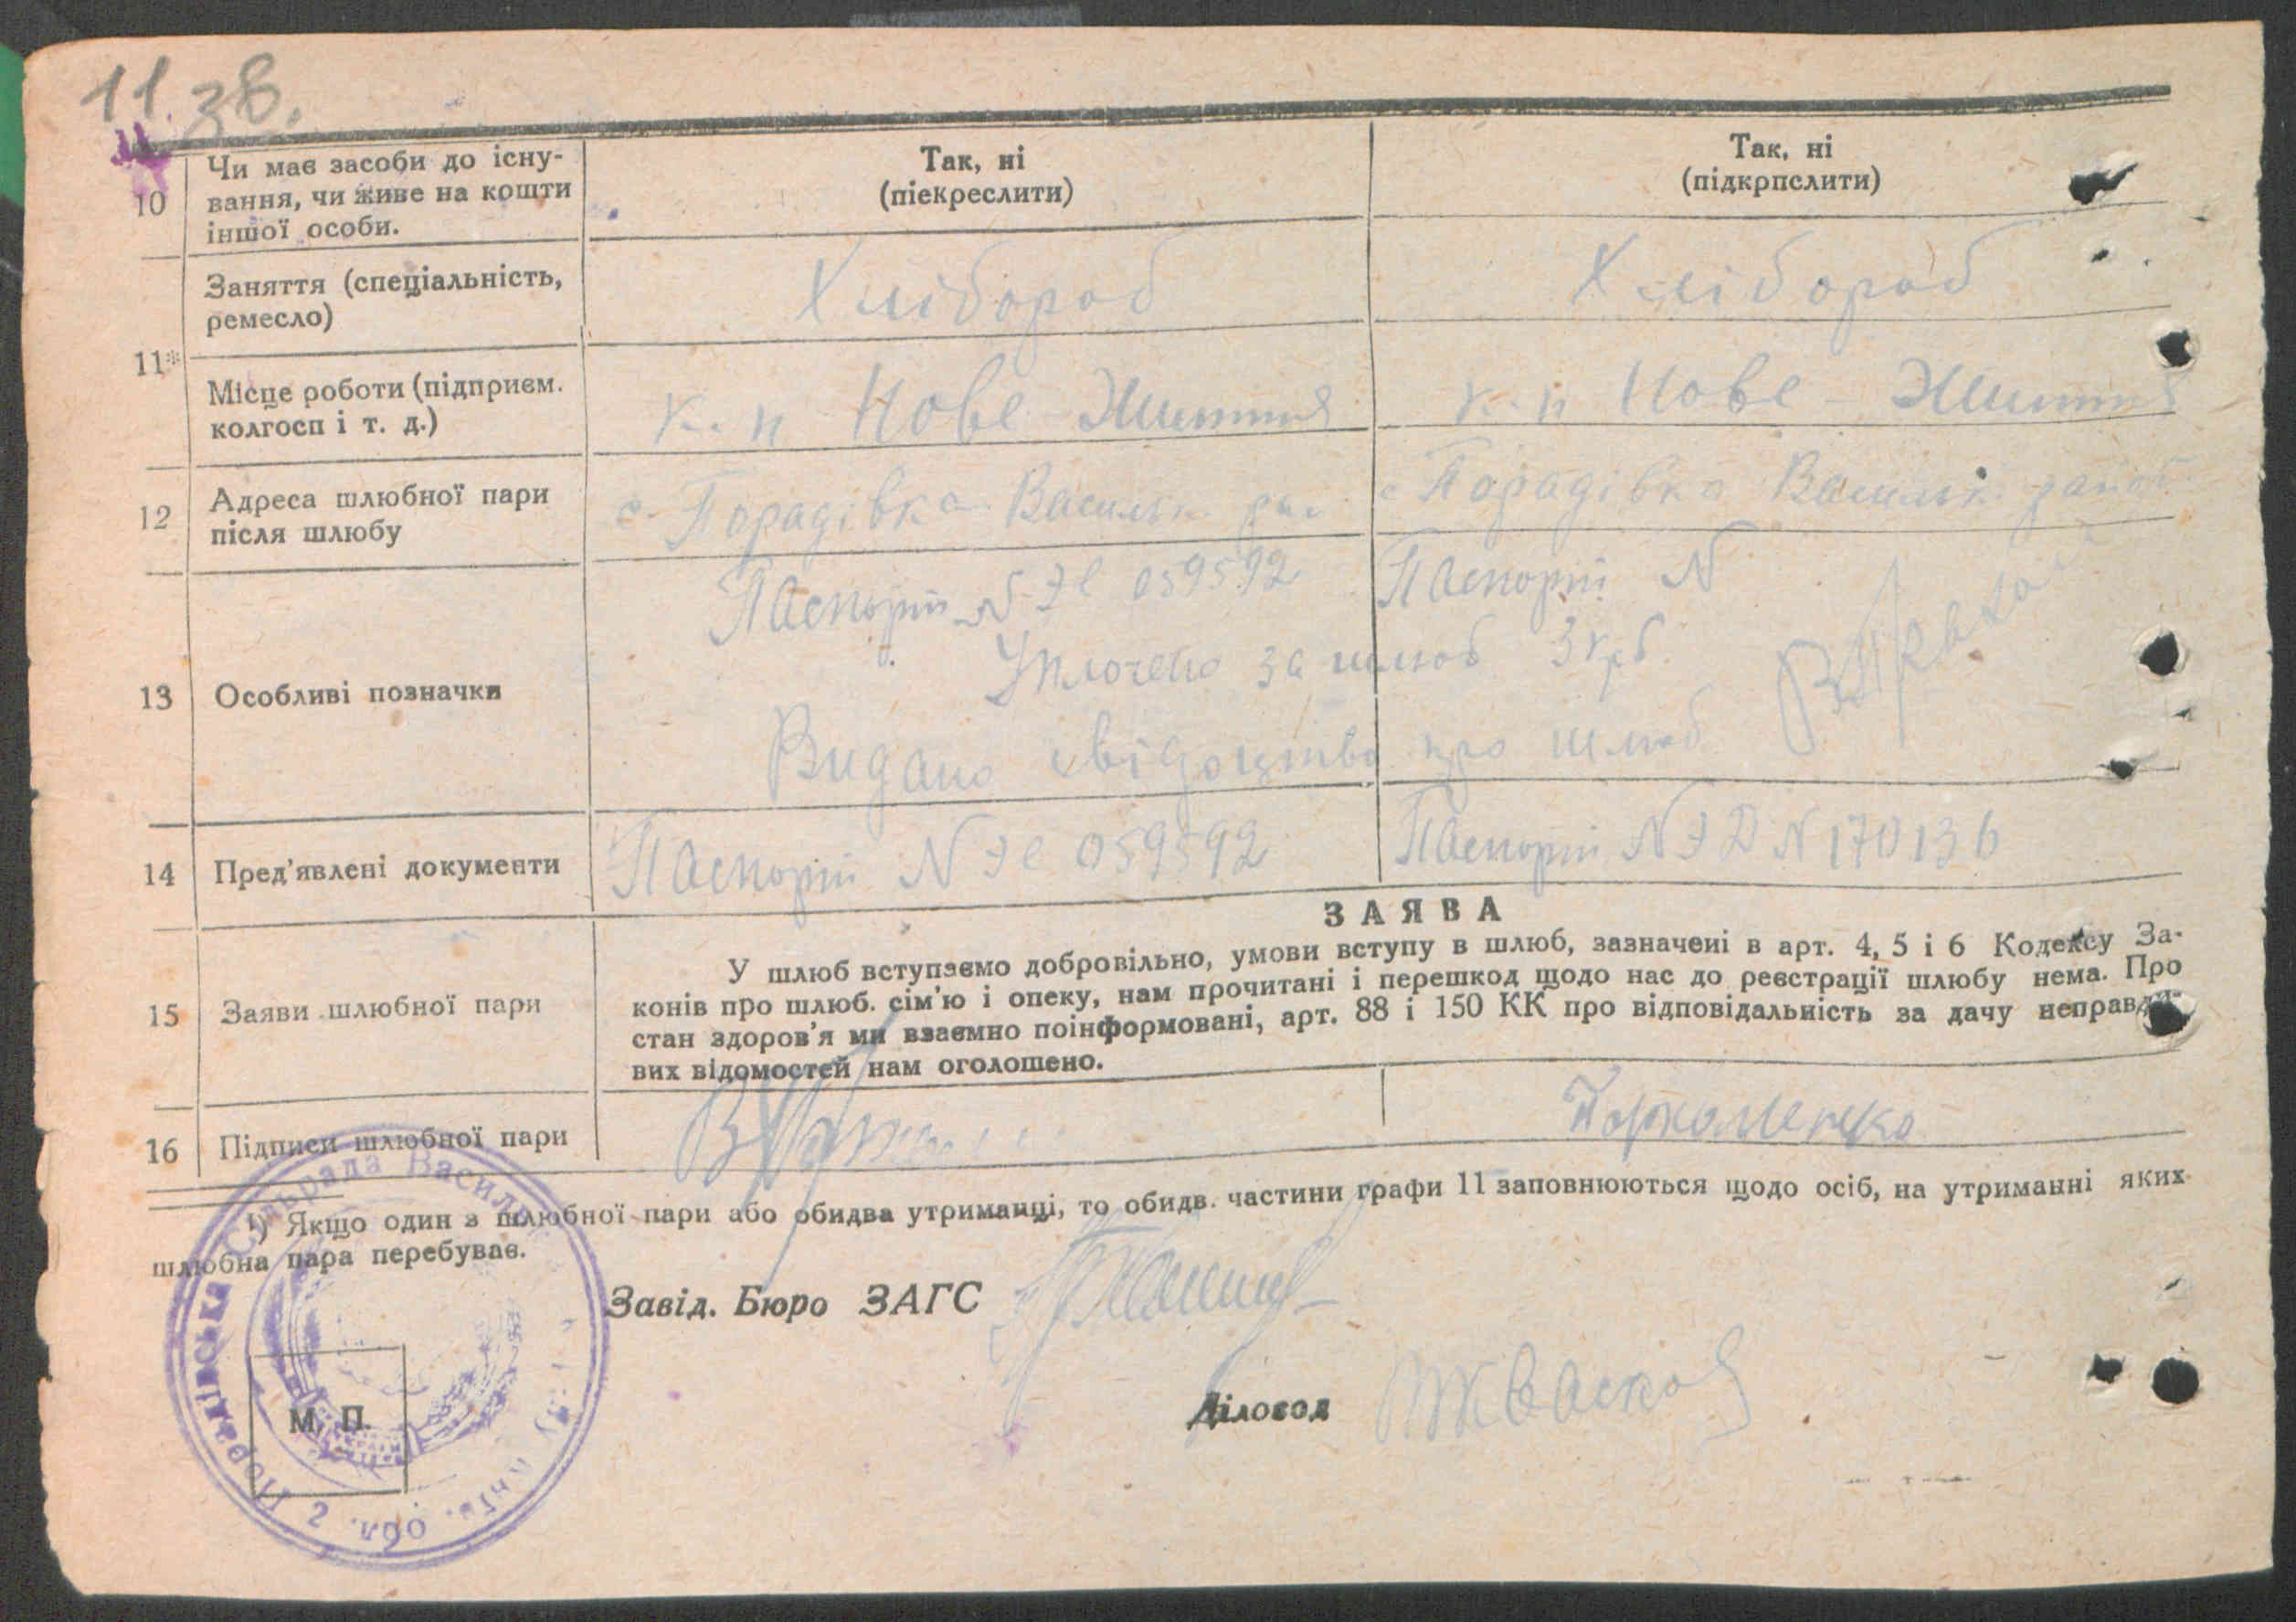 11 38.
10 Чи має засоби до існу-
вання, чи живе на кошти
іншої особи.
Так, ні
(піекреслити)
Так, ні
(підкрпслити)
11*
Заняття (спеціальність,
ремесло)
Хлібороб
Хлібороб
Місце роботи (підприєм.
колгосп і т. д.)
к. п Нове Життя
к. п Нове - Життя
12 Адреса шлюбної пари
після шлюбу
с. Порадівка Васильк. рай
с Порадівка Васильк район
13 Особливі позначки
Паспорт N ЭЕ 059592
Паспорт N
Уплочено за шлюб 3 крб.
Видано свідоцтво про шлюб
14 Пред'явлені документи
Паспорт N ЭЕ 059592
Паспорт N ЭД N 170136
15 Заяви шлюбної пари
ЗАЯВА
У шлюб вступаємо добровільно, умови вступу в шлюб, зазначені в арт. 4, 5 і 6 Кодексу За-
конів про шлюб. сім'ю і опеку, нам прочитані і перешкод щодо нас до реєстрації шлюбу нема. Про
стан здоров'я ми взаємно поінформовані, арт. 88 і 150 КК про відповідальність за дачу неправди-
вих відомостей нам оголошено.
16 Підписи шлюбної пари
Пархоменко
¹) Якщо один з шлюбної пари або обидва утриманці, то обидв. частини графи 11 заповнюються щодо осіб, на утриманні яких
шлюбна пара перебуває.
Завід. Бюро ЗАГС
Діловод
М. П.
Порадівська Сільрада Васильк
обл. 2